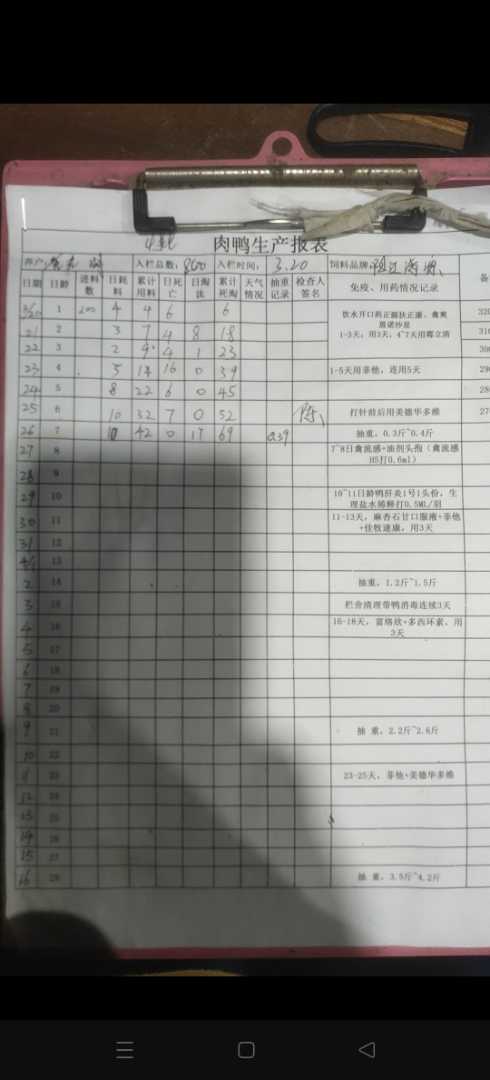 肉鸭生产报表
入栏总数: 800 入栏时间: 3.20 饲料品牌:
日期 日龄 进料数 日耗料 累计用料 日死亡 日淘汰 累计死淘 天气情况 抽重记录 检查人签名 免疫、用药情况记录
3/20 1 200 4 4 6 6
21 2 3 7 4 8 18 1-3天; 用3天, 4~7天用霉立清
22 3 2 9 4 1 23
23 4 5 14 16 0 39 1-5天用菲他, 连用5天
24 5 8 22 6 0 45
25 6 10 32 7 0 52 陈 打针前后用美德华多维
26 7 10 42 0 17 69 0.39 抽重, 0.3斤~0.4斤
27 8 7~8日禽流感+油剂头孢 (禽流感H5打0.6ml)
28 9
29 10 10~11日龄鸭肝炎1号1头份, 生理盐水稀释打0.5ML/羽
30 11 11-13天, 麻杏石甘口服液+菲他+佳牧速康, 用3天
31 12
4/1 13
2 14 抽重, 1.2斤~1.5斤
3 15 栏舍清理带鸭消毒连续3天
4 16 16-18天, 富络欣+多西环素, 用3天
5 17
6 18
7 19
8 20
9 21 抽 重, 2.2斤~2.6斤
10 22
11 23 23-25天, 菲他+美德华多维
12 24
13 25
14 26
15 27
16 28 抽 重, 3.5斤~4.2斤